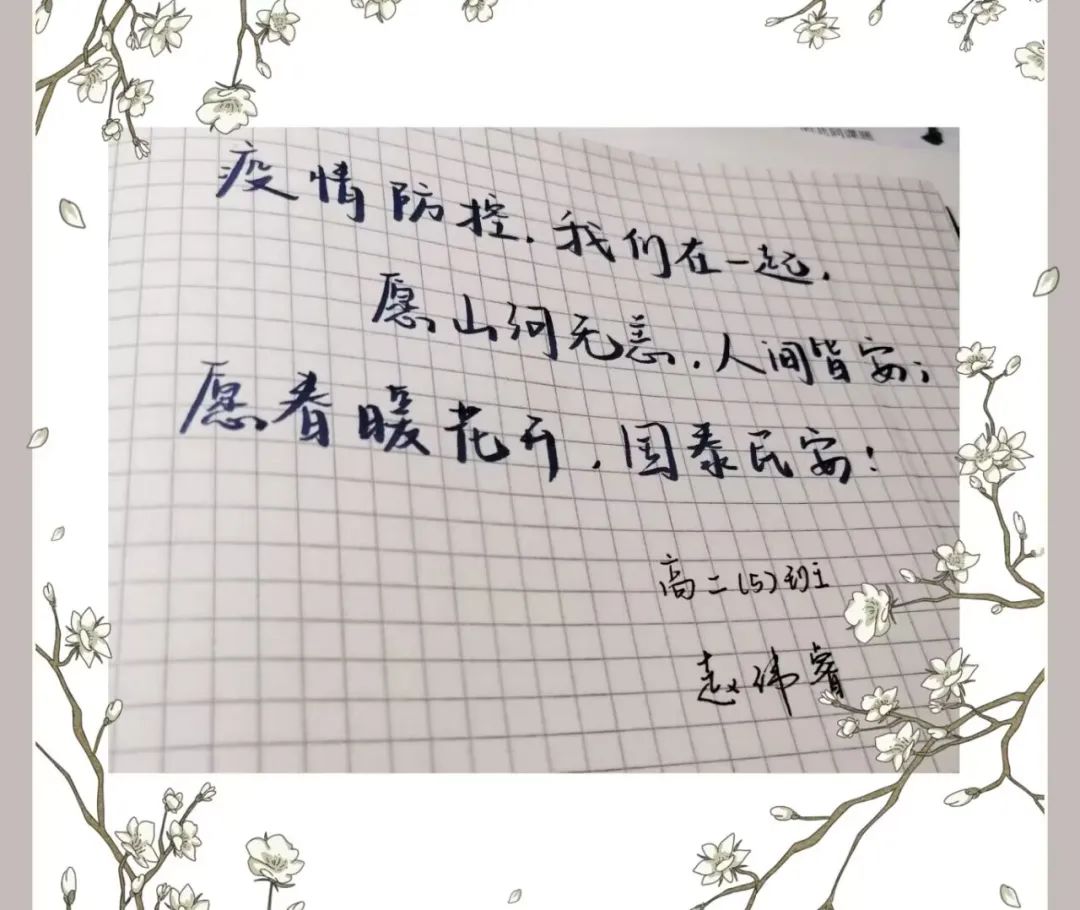 疫情防控，我们在一起，
愿山河无恙，人间皆安；
愿春暖花开，国泰民安！
高二(5)班
赵祎睿